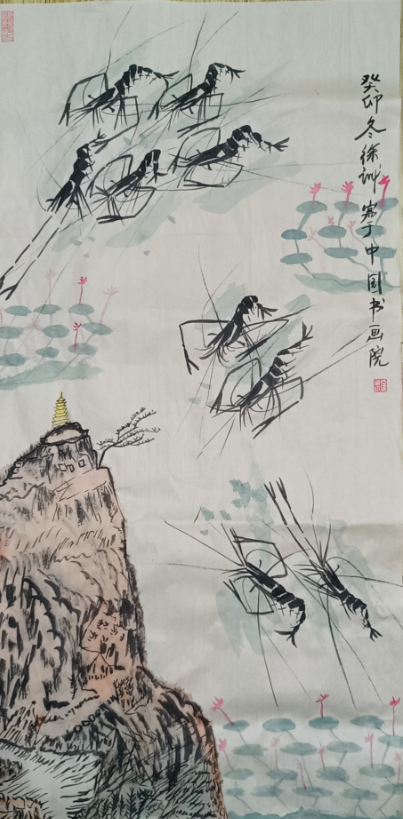 癸卯冬徐训写于中国书画院